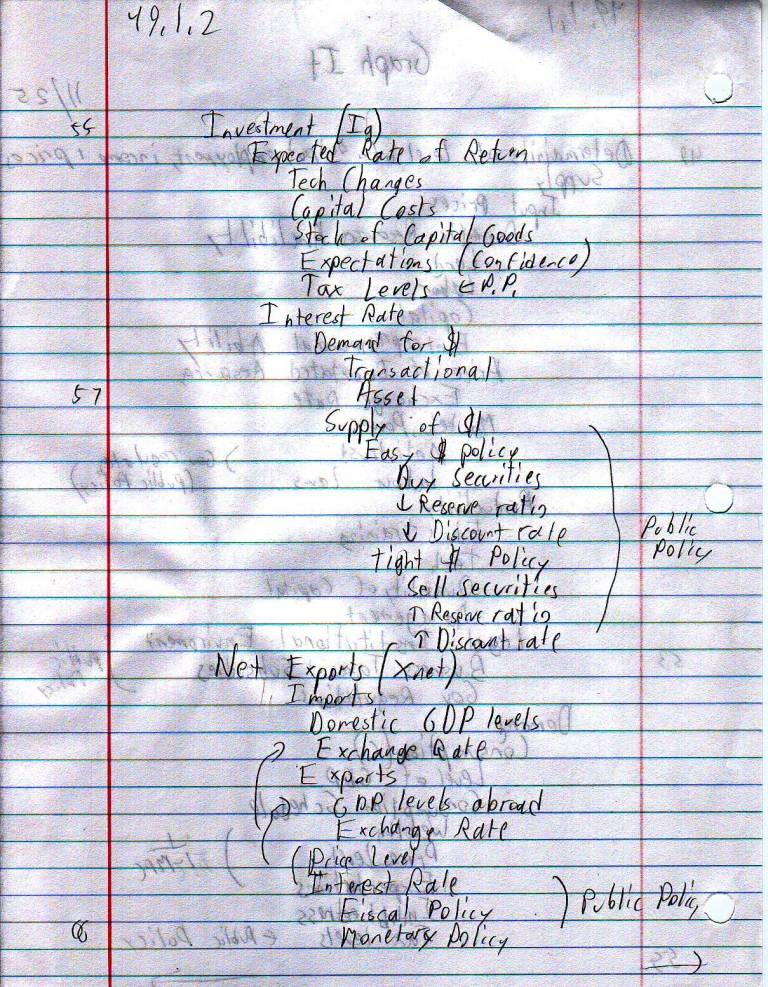 49,1,2
55
Investment (Ig)
Expected Rate of Return
Tech Changes
Capital Costs
Stock of Capital Goods
Expectations (Confidence)
Tax Levels ← P.P.
Interest Rate
Demand for $
Transactional
57 Asset
Supply of $
Easy $ policy
Buy securities
↓ Reserve ratio
↓ Discount rate
Public
Policy
tight $ Policy
Sell securities
↑ Reserve ratio
↑ Discount rate
Net Exports (Xnet)
Imports
Domestic GDP levels
Exchange Rate
Exports
GDP levels abroad
Exchange Rate
(Price Level
Interest Rate
Fiscal Policy ) Public Policy
Monetary Policy